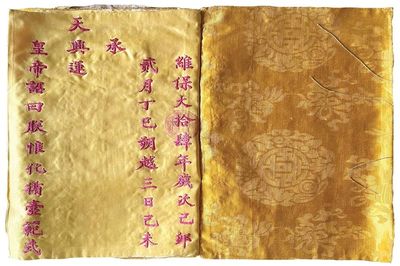 維保大拾肆年歲次己卯
貳月丁巳朔越三日己未
承
天興運
皇帝詔曰朕惟化猶壼範式